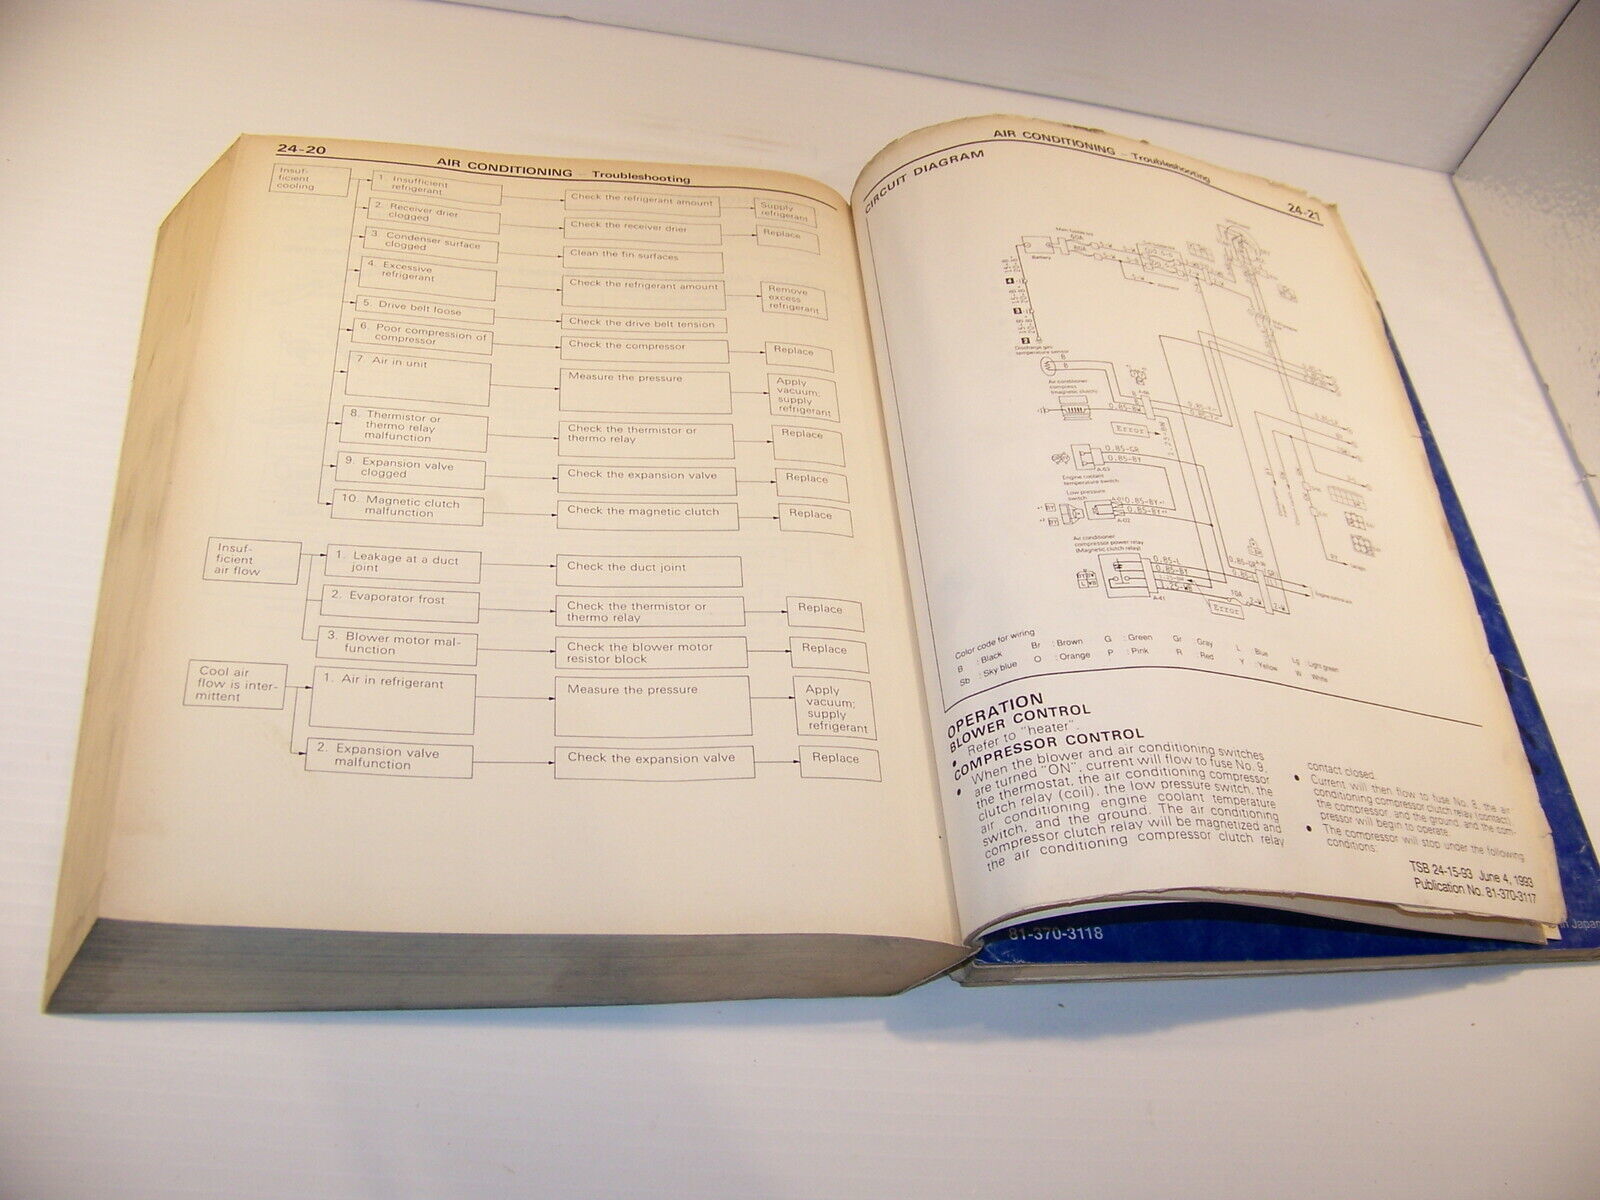 24-20
AIR CONDITIONING — Troubleshooting
Insuf-
ficient
cooling
1. Insufficient
refrigerant
Check the refrigerant amount
Supply
refrigerant
2. Receiver drier
clogged
Check the receiver drier
Replace
3. Condenser surface
clogged
Clean the fin surfaces
4. Excessive
refrigerant
Check the refrigerant amount
Remove
excess
refrigerant
5. Drive belt loose
Check the drive belt tension
6. Poor compression of
compressor
Check the compressor
Replace
7. Air in unit
Measure the pressure
Apply
vacuum;
supply
refrigerant
8. Thermistor or
thermo relay
malfunction
Check the thermistor or
thermo relay
Replace
9. Expansion valve
clogged
Check the expansion valve
Replace
10. Magnetic clutch
malfunction
Check the magnetic clutch
Replace
Insuf-
ficient
air flow
1. Leakage at a duct
joint
Check the duct joint
2. Evaporator frost
Check the thermistor or
thermo relay
Replace
3. Blower motor mal-
function
Check the blower motor
resistor block
Replace
Cool air
flow is inter-
mittent
1. Air in refrigerant
Measure the pressure
Apply
vacuum;
supply
refrigerant
2. Expansion valve
malfunction
Check the expansion valve
Replace
AIR CONDITIONING — Troubleshooting
24-21
CIRCUIT DIAGRAM
60A
Battery
Discharge gas
temperature sensor
B
B
Air conditioner
compress
(magnetic clutch)
0.85-BW
Error
1.25-BW
0.85-GR
0.85-BY
A-03
Engine coolant
temperature switch
Low pressure
switch
0.85-BY
0.85-BY
A-02
Air conditioner
compressor power relay
(Magnetic clutch relay)
0.85-L
0.85-BY
A-41
10A
2-W
2-W
Error
Color code for wiring
B : Black Br : Brown G : Green Gr : Gray L : Blue Lg : Light green
Sb : Sky blue O : Orange P : Pink R : Red Y : Yellow W : White
OPERATION
BLOWER CONTROL
• Refer to "heater".
COMPRESSOR CONTROL
• When the blower and air conditioning switches
are turned "ON", current will flow to fuse No. 9,
the thermostat, the air conditioning compressor
clutch relay (coil), the low pressure switch, the
air conditioning engine coolant temperature
switch, and the ground. The air conditioning
compressor clutch relay will be magnetized and
the air conditioning compressor clutch relay
contact closed.
• Current will then flow to fuse No. 8, the air
conditioning compressor clutch relay (contact),
the compressor, and the ground, and the com-
pressor will begin to operate.
• The compressor will stop under the following
conditions:
TSB 24-15-93 June 4, 1993
Publication No. 81-370-3117
81-370-3118
in Japan